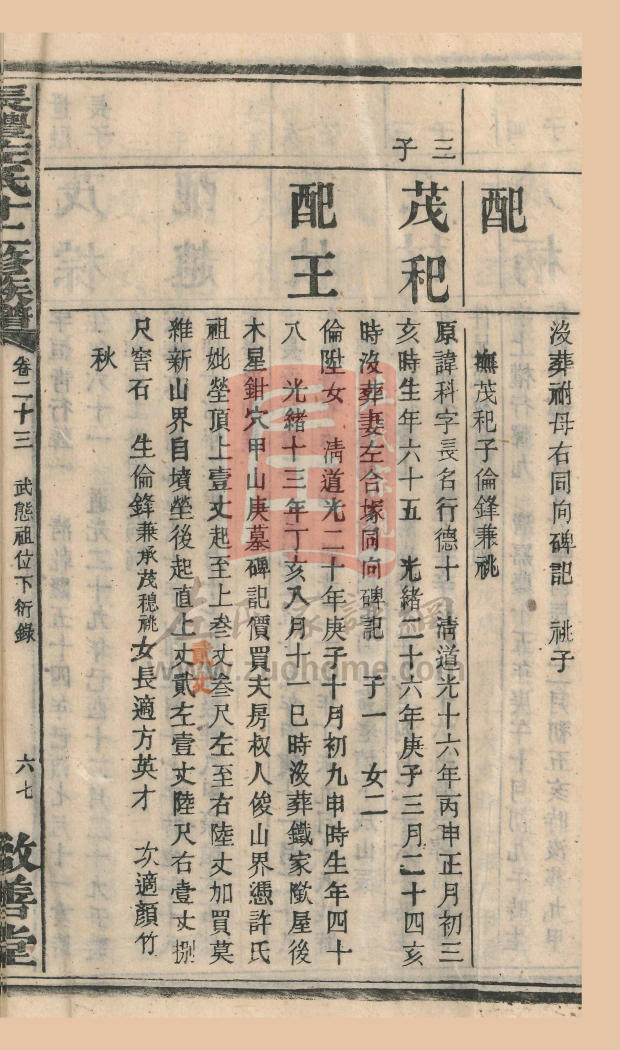 配
沒葬祔母右同向碑記 祧子
撫茂祀子倫鋒兼祧
三子
茂祀
原諱科字長名行德十 淸道光十六年丙申正月初三
亥時生年六十五 光緒二十六年庚子三月二十四亥
時沒葬妻左合塚同向碑記 子一 女二
配王
倫陞女 淸道光二十年庚子十月初九申時生年四十
八 光緒十三年丁亥八月十一巳時沒葬鐵家歐屋後
木星鉗穴甲山庚墓碑記價買夫房叔人俊山界憑許氏
祖妣塋頂上壹丈起至上叁丈叁尺左至右陸丈加買莫
維新山界自墳塋後起直上丈貳左壹丈陸尺右壹丈捌
貳丈
尺窖石 生倫鋒兼承茂穏祧女長適方英才 次適顏竹
秋
長澧左氏十二修族譜
卷二十三
武態祖位下衍錄
六七
敘善堂
左氏家譜網
www.zuohome.com